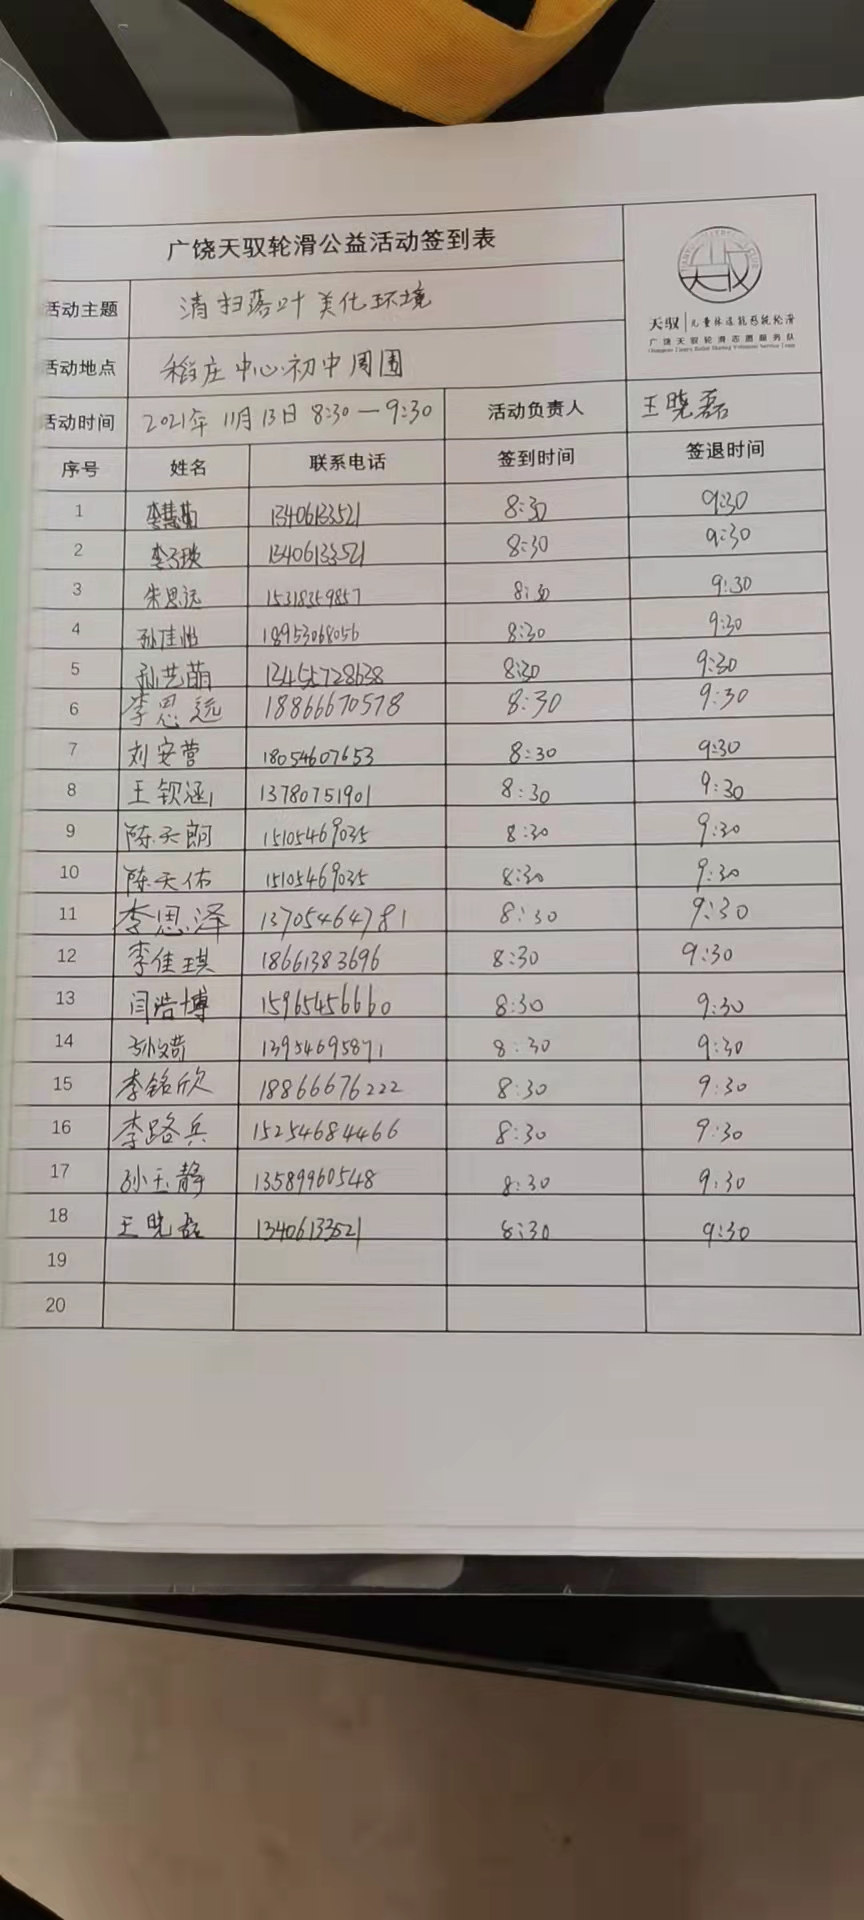 广饶天驭轮滑公益活动签到表
天驭
广饶天驭轮滑志愿服务队
活动主题 清扫落叶 美化环境
活动地点 稻庄中心初中周围
活动时间 2021年11月13日 8:30—9:30 活动负责人 王晓磊
序号 姓名 联系电话 签到时间 签退时间
1 李慧菊 13406133521 8:30 9:30
2 13406133521 8:30 9:30
3 朱思远 15318359857 8:30 9:30
4 孙佳怡 18953068056 8:30 9:30
5 孙艺萌 13455728638 8:30 9:30
6 李思远 18866670578 8:30 9:30
7 刘安营 18054607653 8:30 9:30
8 王钦涵 13780751901 8:30 9:30
9 陈天朗 15105469035 8:30 9:30
10 陈天佑 15105469035 8:30 9:30
11 李思泽 13705464781 8:30 9:30
12 李佳琪 18661383696 8:30 9:30
13 闫浩博 15965456660 8:30 9:30
14 13954695871 8:30 9:30
15 李铭欣 18866676222 8:30 9:30
16 李路兵 15254684466 8:30 9:30
17 孙玉静 13589960548 8:30 9:30
18 王晓磊 13406133521 8:30 9:30
19
20